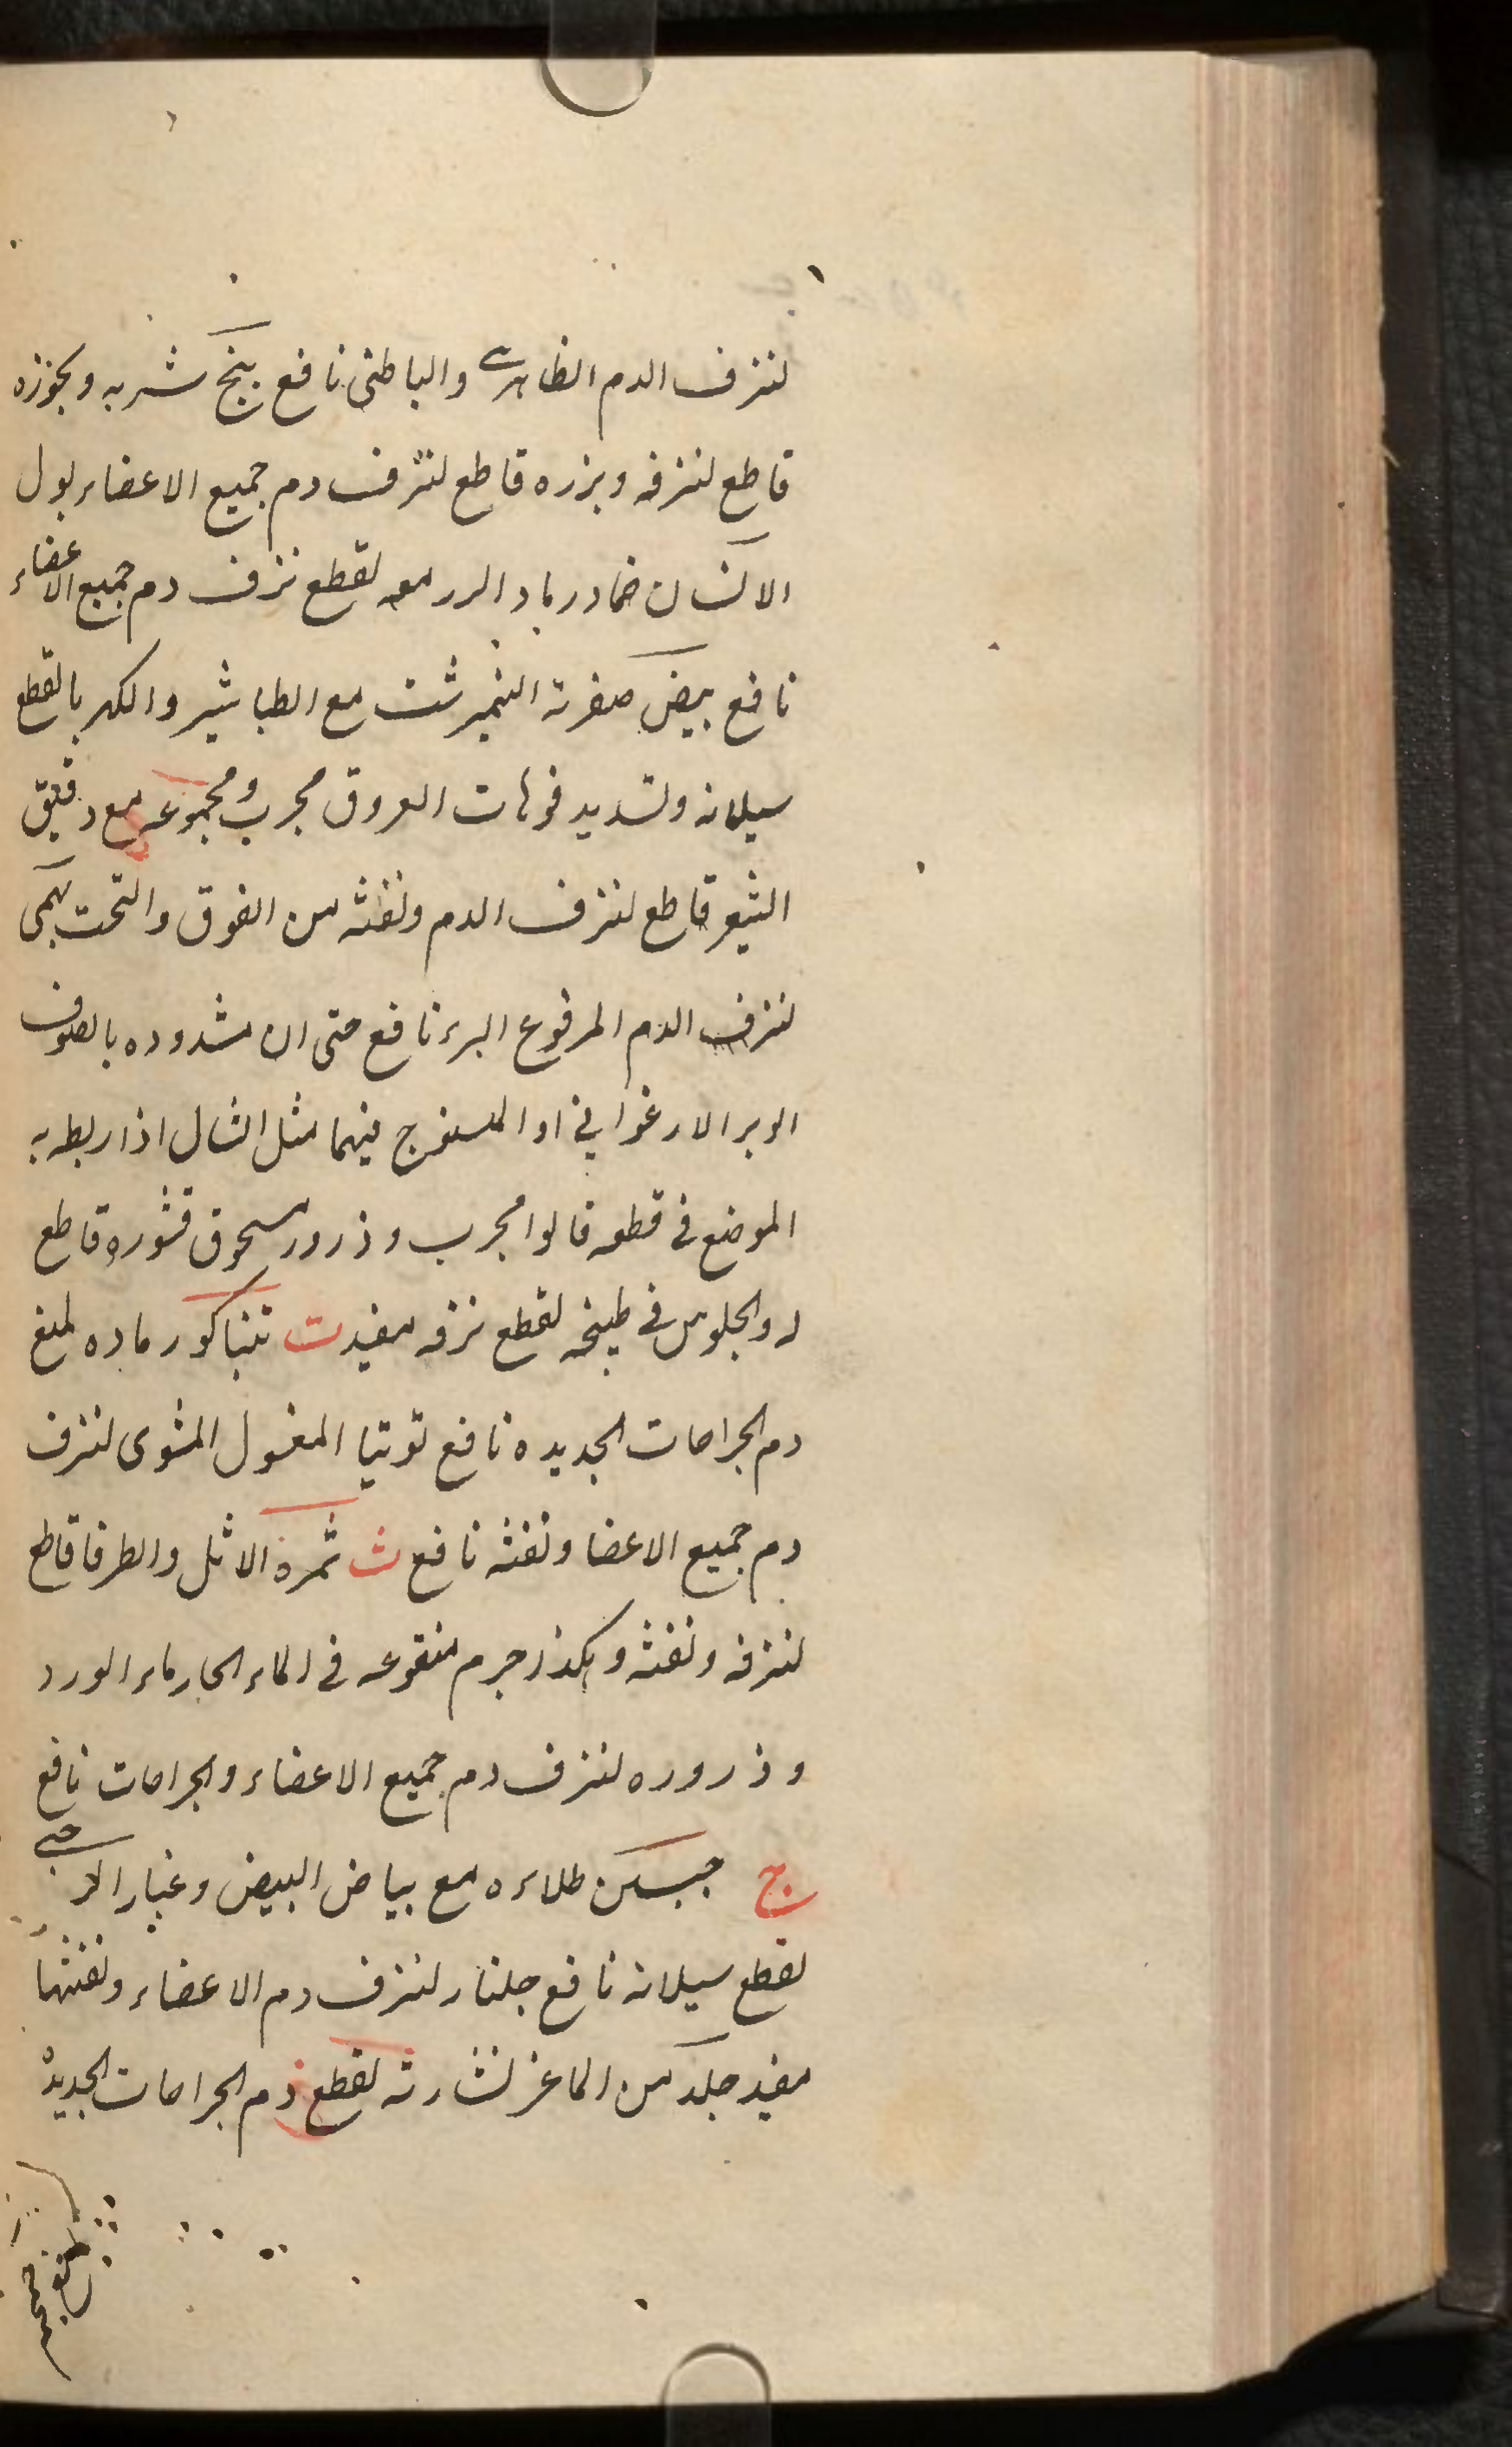 لنزف الدم الظاهری والباطنی نافع بنج شربه وبجوزه
قاطع لنزفه وبزره قاطع لنزف دم جمیع الاعضاء بول
الانسان ضماد رماد معه لقطع نزف دم جمیع الاعضاء
نافع بیض صفرته النیمرشت مع الطباشیر والکهربا لقطع
سیلانه وتسدید فوهات العروق مجرب ومجموعه مع دقیق
الشعیر قاطع لنزف الدم ونفثه من الفوق والتحت
لنزف الدم المرفوع البرء نافع حتی ان مشدوده بالصوف
الوبر الارغوانی او فیهما مثل الشال اذا ربط به
الموضع فی قطعه قالوا مجرب وذرور مسحوق قشوره قاطع
له والجلوس فی طبیخه لقطع نزفه مفید ت تنباکو رماده لمنع
دم الجراحات الجدیده نافع توتیا المغسول المشوی لنزف
دم جمیع الاعضا ونفثه نافع ث ثمرة الاثل والطرفا قاطع
لنزفه ونفثه وهکذا جرم منقوعه فی الماء الحار ماء الورد
وذروره لنزف دم جمیع الاعضاء والجراحات نافع
ج جبسین طلاءه مع بیاض البیض وغبار الرحی
لقطع سیلانه نافع جلنار لنزف دم الاعضاء ونفثها
مفید جلد من الماعز نشارته لقطع دم الجراحات الجدیده